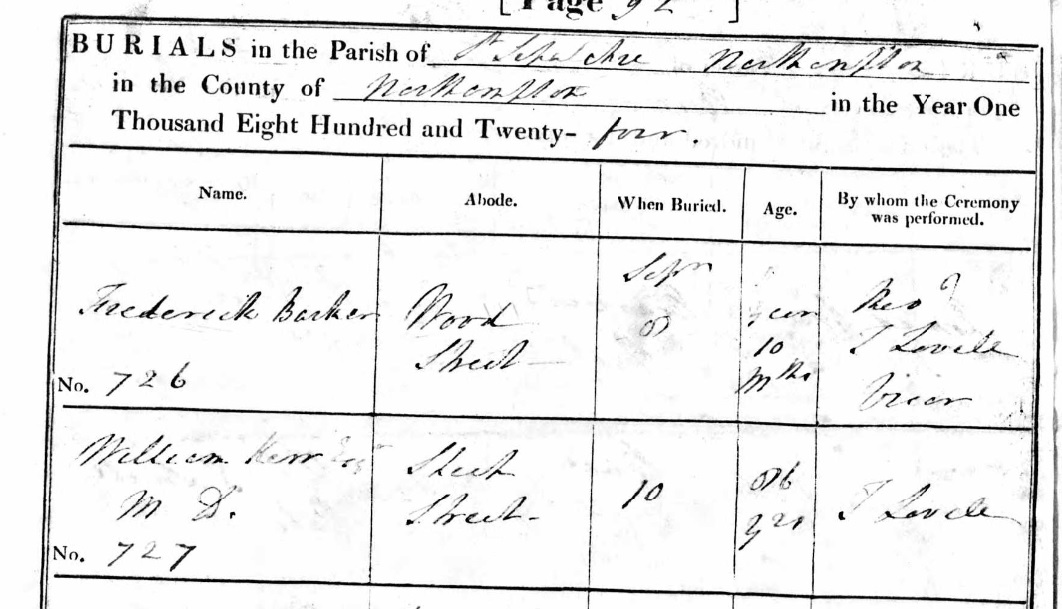 [Page 92]
BURIALS in the Parish of St Sepulchre Northampton
in the County of Northampton in the Year One
Thousand Eight Hundred and Twenty- four.
Name. Abode. When Buried. Age. By whom the Ceremony was performed.
Frederick Barker
No. 726
Wood
Street
Sepr
8
year
10
Mths
Revd
T Lovell
Vicar
William Kerr Esqr
M D.
No. 727
Sheep
Street
10
86
yrs
T Lovell